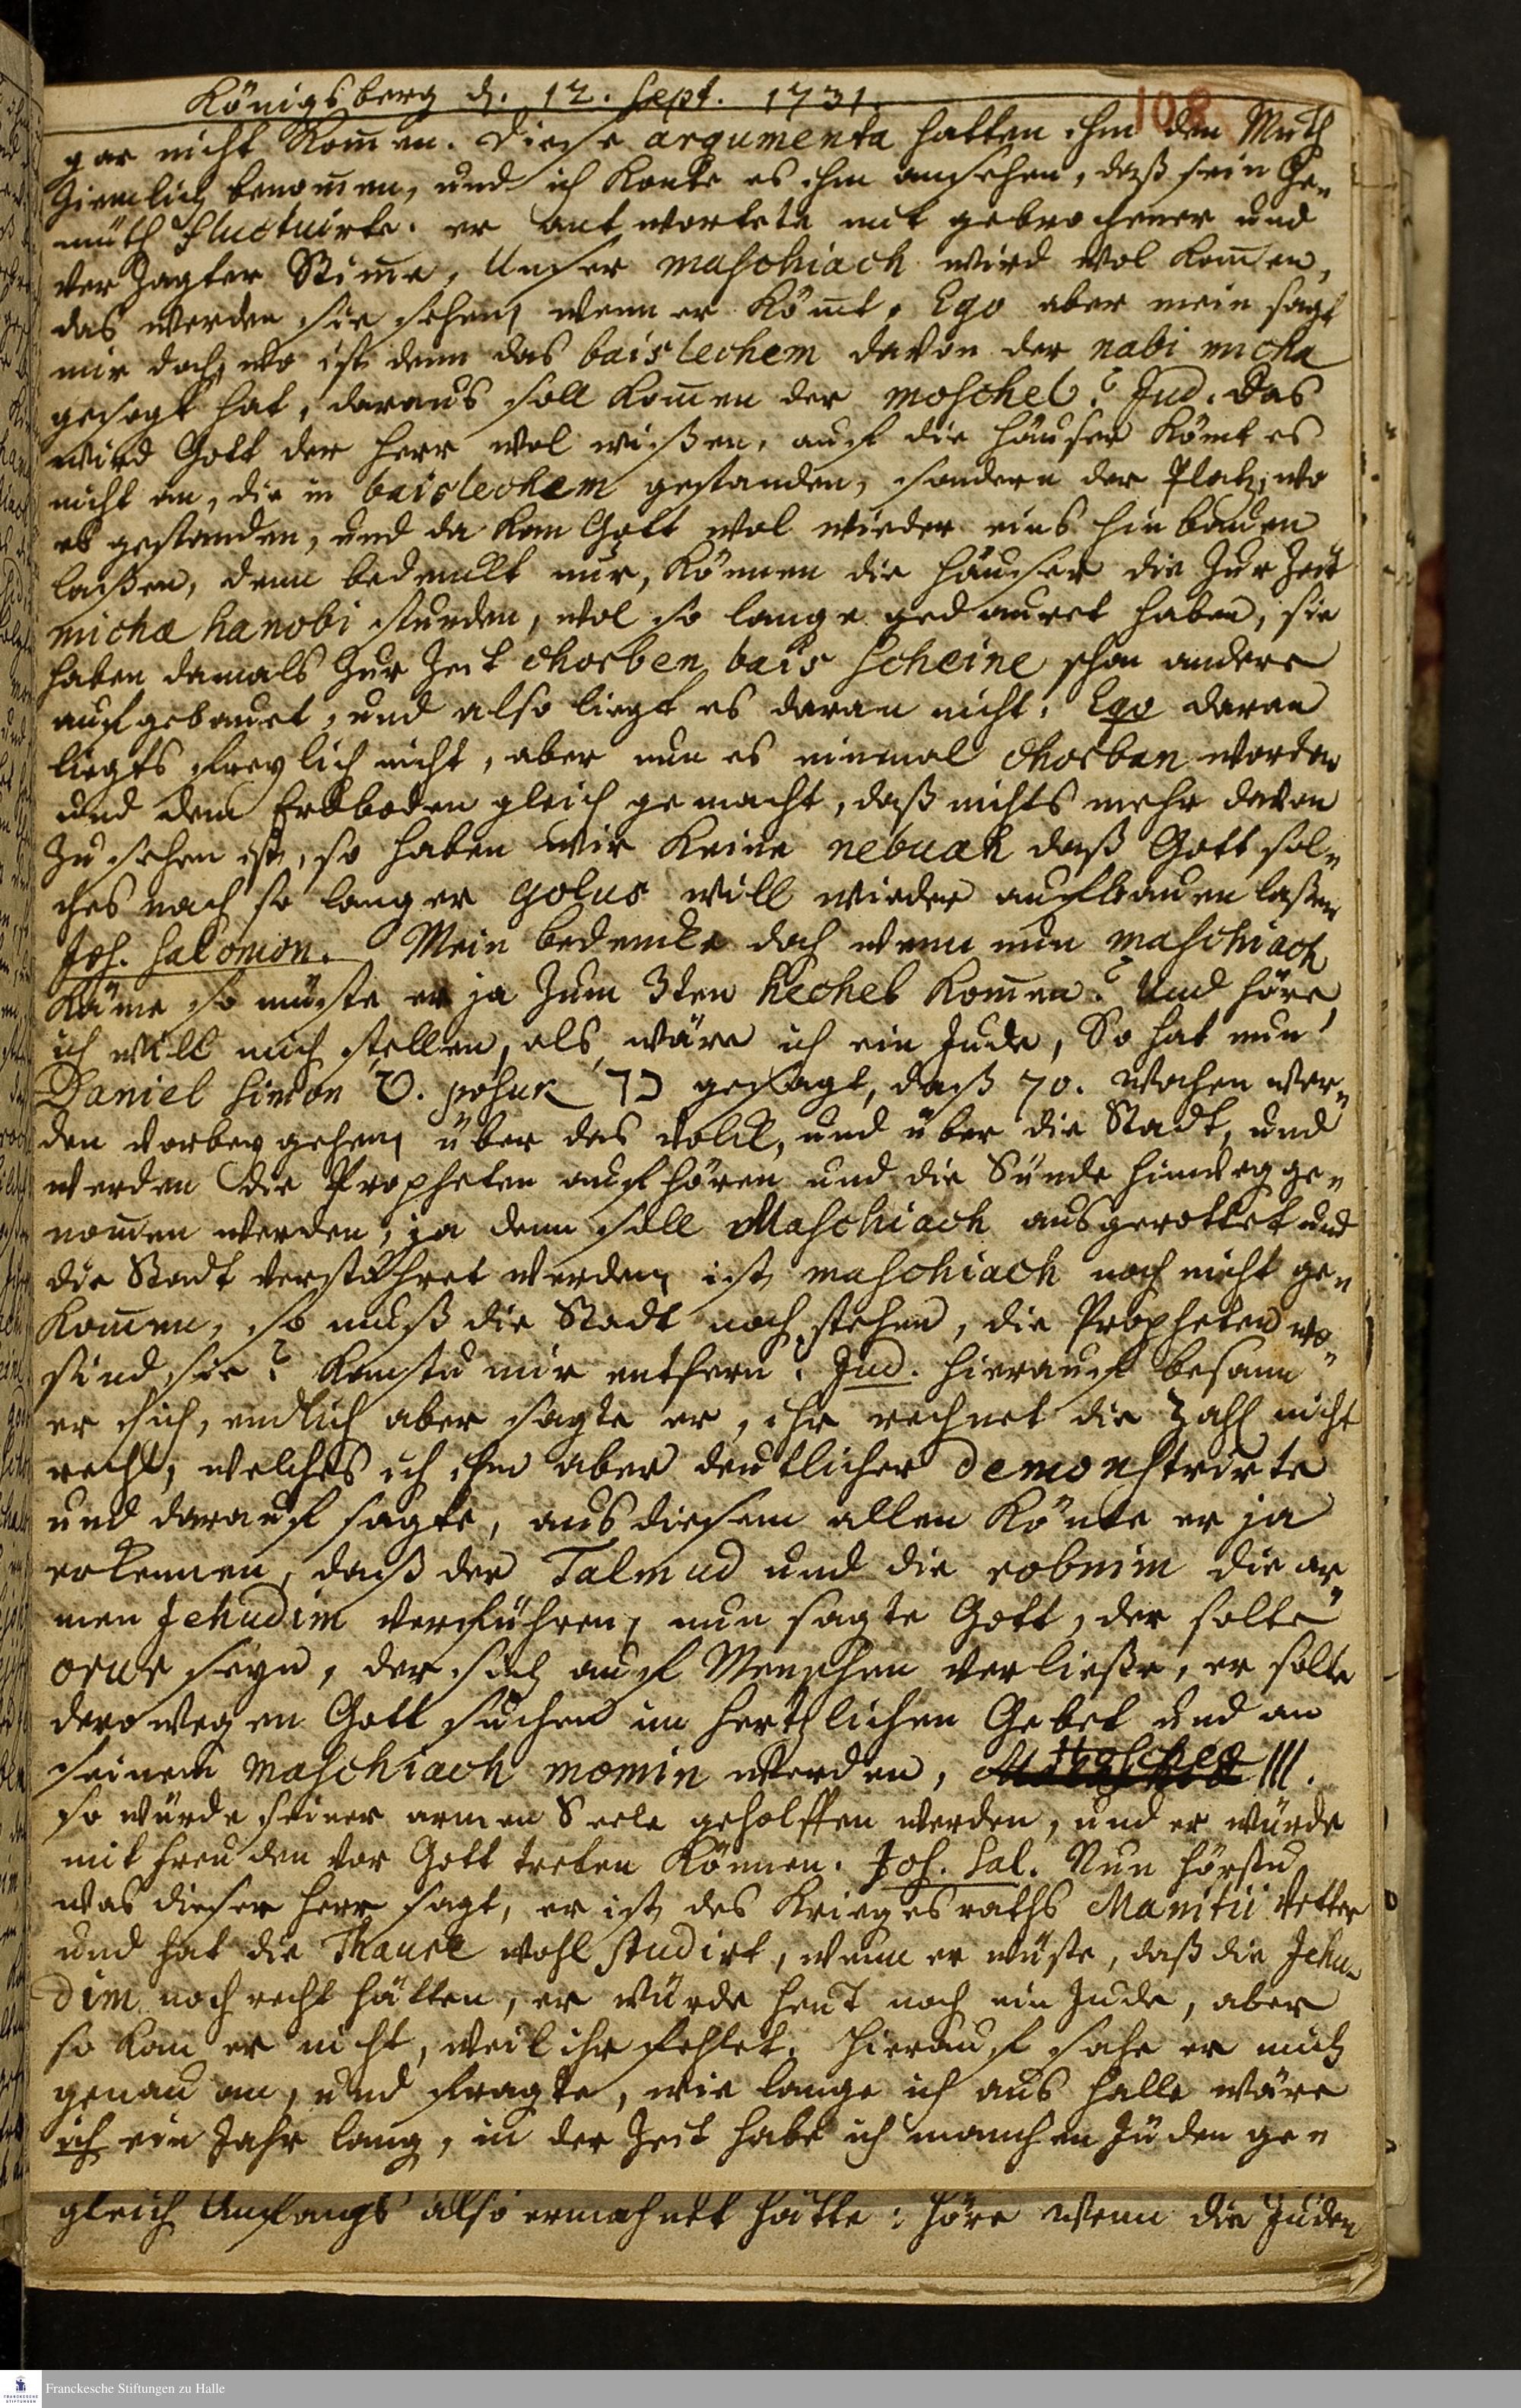 Königsberg d. 12. Sept. 1731.
108
gar nicht kom̅en. Diese argumenta hatten ihm den Muth
ziemlich benom̅en, und ich konte es ihm ansehen, daß sein Ge-
müth fluctuirte. er antwortete mit gebrochener und
verzagter Stim̅e, Unser maschiach wird wol kom̅en,
das werden sie sehen, wenn er köm̅t. Ego aber mein sagt
mir doch, wo ist denn das baislechem davon der nabi micha
gesagt hat, daraus soll kom̅en der moschel? Jud. Das
wird Gott der Herr wol wißen, auf die Häuser köm̅t es
nicht an, die in baislechem gestanden, sondern der Platz, wo
es gestanden, und da kan Gott wol wieder eins hin bauen
laßen, denn bedenckt nur, können die Häuser die zur Zeit
micha hanobi stunden, wol so lange gedauret haben, sie
haben damals zur Zeit chorben bais scheine schon andere
aufgebauet, und also liegt es daran nicht. Ego daran
liegts freylich nicht, aber nun es einmal chorban worden
und dem Erdboden gleich gemacht, daß nichts mehr davon
zu sehen ist, so haben wir keine nebuah daß Gott sol-
ches nach so langer golus will wieder aufbauen laßen
Joh. Salomon. Mein bedencke doch wenn nun maschiach
käme so müste er ja zum 3ten hechel kom̅en? Und höre,
ich will mich stellen, als wäre ich ein Jude, So hat nun
Daniel simon ט. posuk כד gesagt, daß 70. Wochen wer-
den vorbey gehen, über das Volck, und über die Stadt, und
werden die Propheten aufhören und die Sünde hinwegge-
nom̅en werden, ja denn soll Maschiach ausgerottet und
die Stadt verstöhret werden, ist maschiach noch nicht ge-
kom̅en, so muß die Stadt noch stehen, die Propheten wo
sind sie? kanstu mir entfern. Jud. Hierauf besann
er sich, endlich aber sagte er, ihr rechnet die Zahl nicht
recht, welches ich ihm aber deutlicher demonstrirte
und darauf sagte, aus diesem allen könte er ja
erkennen, daß der Talmud und die robnim die ar-
men Jehudim verführen, nun sagte Gott, der solte
orur seyn, der sich auf Menschen verließe, er solte
derowegen Gott suchen im hertzlichen Gebet und an
seinem Maschiach momin werden,
so würde seiner armen Seele geholffen werden, und er würde
mit Freuden vor Gott treten können. Joh. Sal. Nun hörstu
was dieser Herr sagt, er ist des Kriegesraths Manitii Vetter
und hat die Thaure wohl studirt, wenn er wüste, daß die Jehu-
dim noch recht hätten, er würde heut noch ein Jude, aber
so kan er nicht, weil ihr fehlet. Hierauf sahe er mich
genau an, und fragte, wie lange ich aus Halle wäre
ich ein Jahr lang, in der Zeit habe ich manchen Jüden ge-
gleich Anfangs also ermahnet hatte: höre wenn die Jüden
Franckesche Stiftungen zu Halle